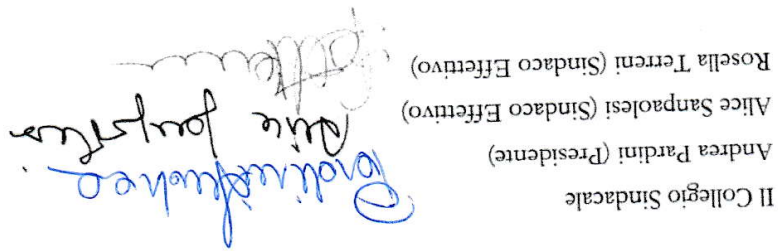 Il Collegio Sindacale
Andrea Pardini (Presidente)
Alice Sanpaolesi (Sindaco Effettivo)
Rosella Terreni (Sindaco Effettivo)
Pardini Andrea
Alice